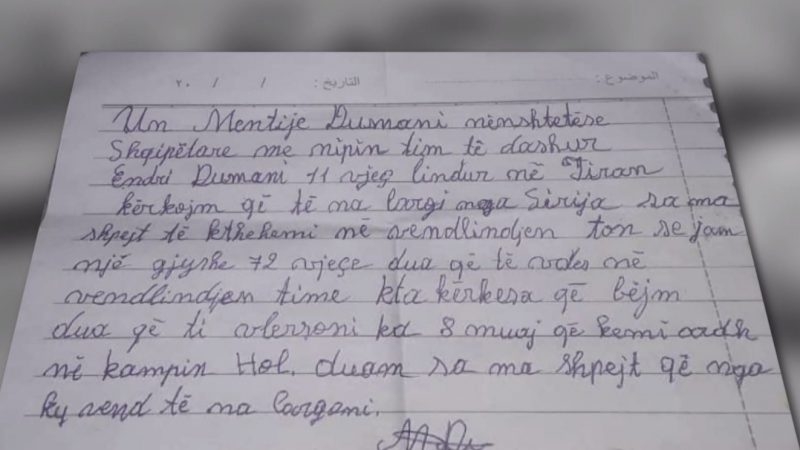 الموضوع : التاريخ : / / ٢٠
Un Mentije Dumani nënshtetëse
Shqipëtare me nipin tim të dashur
Endri Dumani 11 vjeç lindur në Tiran
kërkojm që të na largi nga Sirija sa ma
shpejt të kthehemi në vendlindjen ton se jam
një gjyshe 72 vjeçe dua që të vdes në
vendlindjen time kta kërkesa që bëjm
dua që ti vlersoni ka 8 muaj që kemi ardh
në kampin Hol. duam sa ma shpejt që nga
ky vend të na largoni.